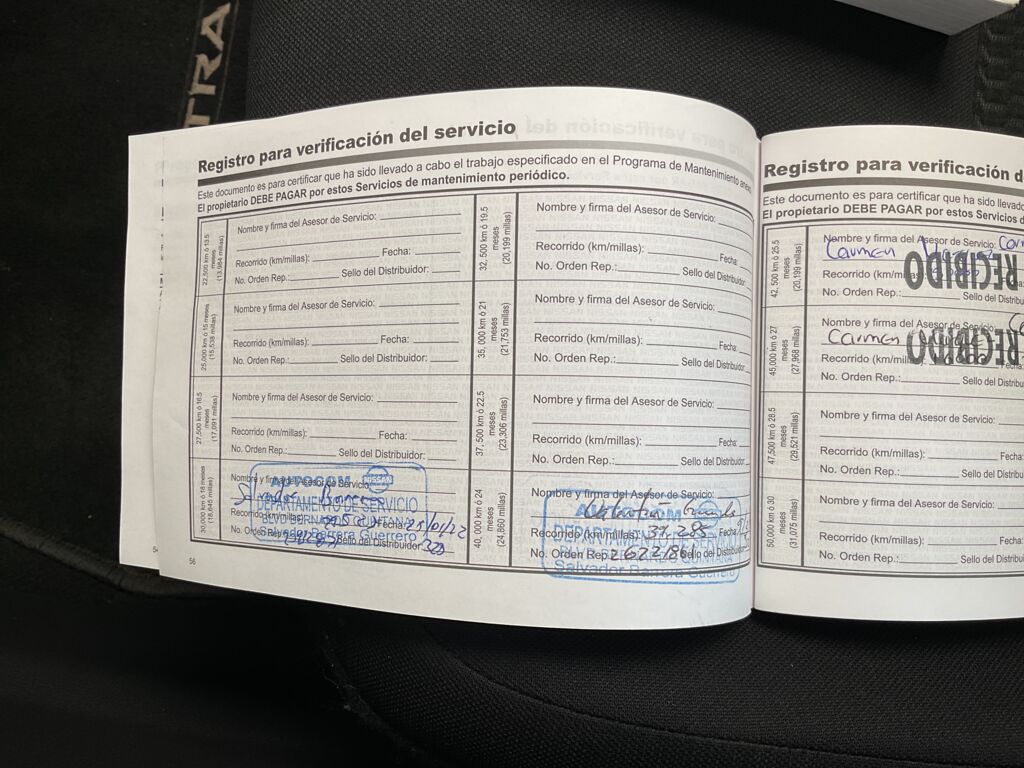 TRA
Registro para verificación del servicio
Este documento es para certificar que ha sido llevado a cabo el trabajo especificado en el Programa de Mantenimiento anexo.
El propietario DEBE PAGAR por estos Servicios de mantenimiento periódico.
22,500 km ó 13.5
meses
(13,984 millas)
Nombre y firma del Asesor de Servicio:
Recorrido (km/millas): Fecha:
No. Orden Rep.: Sello del Distribuidor:
25,000 km ó 15 meses
(15,538 millas)
Nombre y firma del Asesor de Servicio:
Recorrido (km/millas): Fecha:
No. Orden Rep.: Sello del Distribuidor:
27,500 km ó 16.5
meses
(17,091 millas)
Nombre y firma del Asesor de Servicio:
Recorrido (km/millas): Fecha:
No. Orden Rep.: Sello del Distribuidor:
30,000 km ó 18 meses
(18,645 millas)
Nombre y firma del Asesor de Servicio:
Recorrido (km/millas): Fecha:
No. Orden Rep.: Sello del Distribuidor:
NISSAN
DEPARTAMENTO DE SERVICIO
Salvador Barrera Guerrero
56
32,500 km ó 19.5
meses
(20,199 millas)
Nombre y firma del Asesor de Servicio:
Recorrido (km/millas): Fecha:
No. Orden Rep.: Sello del Distribuidor:
35,000 km ó 21
meses
(21,753 millas)
Nombre y firma del Asesor de Servicio:
Recorrido (km/millas): Fecha:
No. Orden Rep.: Sello del Distribuidor:
37,500 km ó 22.5
meses
(23,306 millas)
Nombre y firma del Asesor de Servicio:
Recorrido (km/millas): Fecha:
No. Orden Rep.: Sello del Distribuidor:
40,000 km ó 24
meses
(24,860 millas)
Nombre y firma del Asesor de Servicio:
Recorrido (km/millas): 39,285 Fecha:
No. Orden Rep.: Sello del Distribuidor:
Salvador Barrera Guerrero
Registro para verificación d
Este documento es para certificar que ha sido llevado
El propietario DEBE PAGAR por estos Servicios d
42,500 km ó 25.5
meses
(20,199 millas)
Nombre y firma del Asesor de Servicio:
Carmen
Recorrido (km/mi
No. Orden Rep.: Sello del Distribu
RECIBIDO
45,000 km ó 27
meses
(27,968 millas)
Nombre y firma del Asesor de Servicio:
Carmen
Recorrido (km/mill
No. Orden Rep.: Sello del Distribu
RECIBIDO
47,500 km ó 28.5
meses
(29,521 millas)
Nombre y firma del Asesor de Servicio:
Recorrido (km/millas): Fecha:
No. Orden Rep.: Sello del Distribu
50,000 km ó 30
meses
(31,075 millas)
Nombre y firma del Asesor de Servicio:
Recorrido (km/millas): Fecha:
No. Orden Rep.: Sello del Distribu